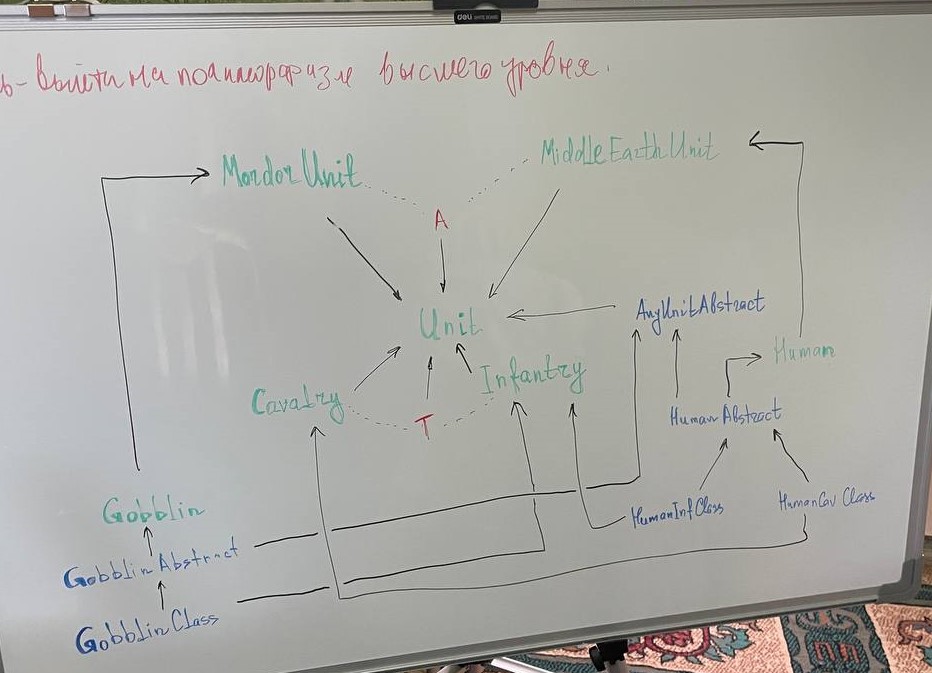 deli
ь-выйти на полиморфизм высшего уровня.
MordorUnit
MiddleEarthUnit
A
Unit
AnyUnitAbstract
Cavalry
Infantry
Human
T
HumanAbstract
Gobblin
HumanInfClass
HumanCavClass
GobblinAbstract
GobblinClass